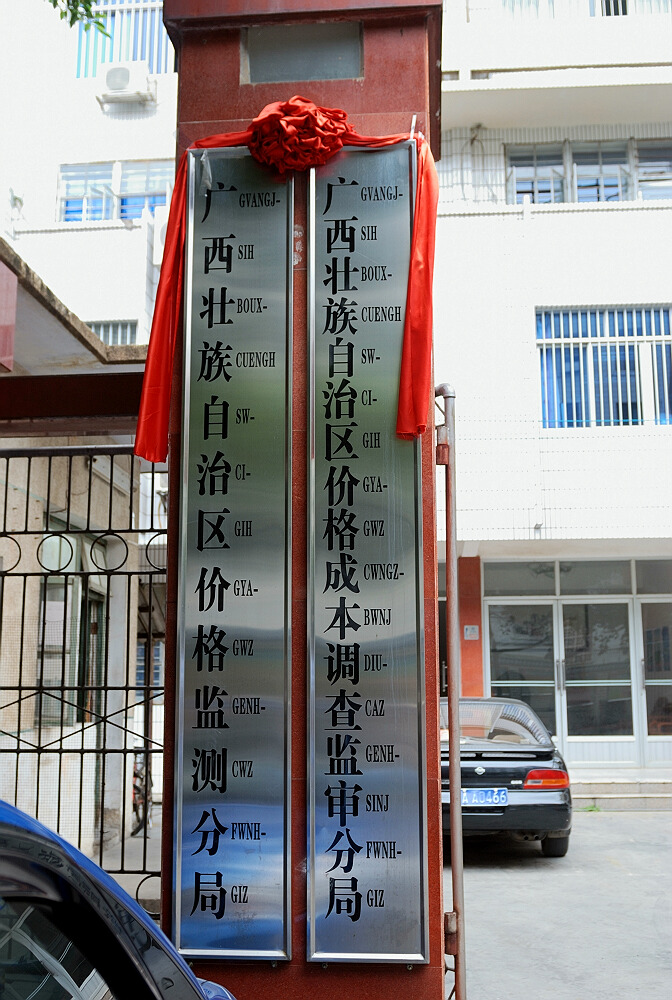 广西壮族自治区价格监测分局
GVANGJ- SIH BOUX- CUENGH SW- CI- GIH GYA- GWZ GENH- CWZ FWNH- GIZ
广西壮族自治区价格成本调查监审分局
GVANGJ- SIH BOUX- CUENGH SW- CI- GIH GYA- GWZ CWNGZ- BWNJ DIU- CAZ GENH- SINJ FWNH- GIZ
A A0466